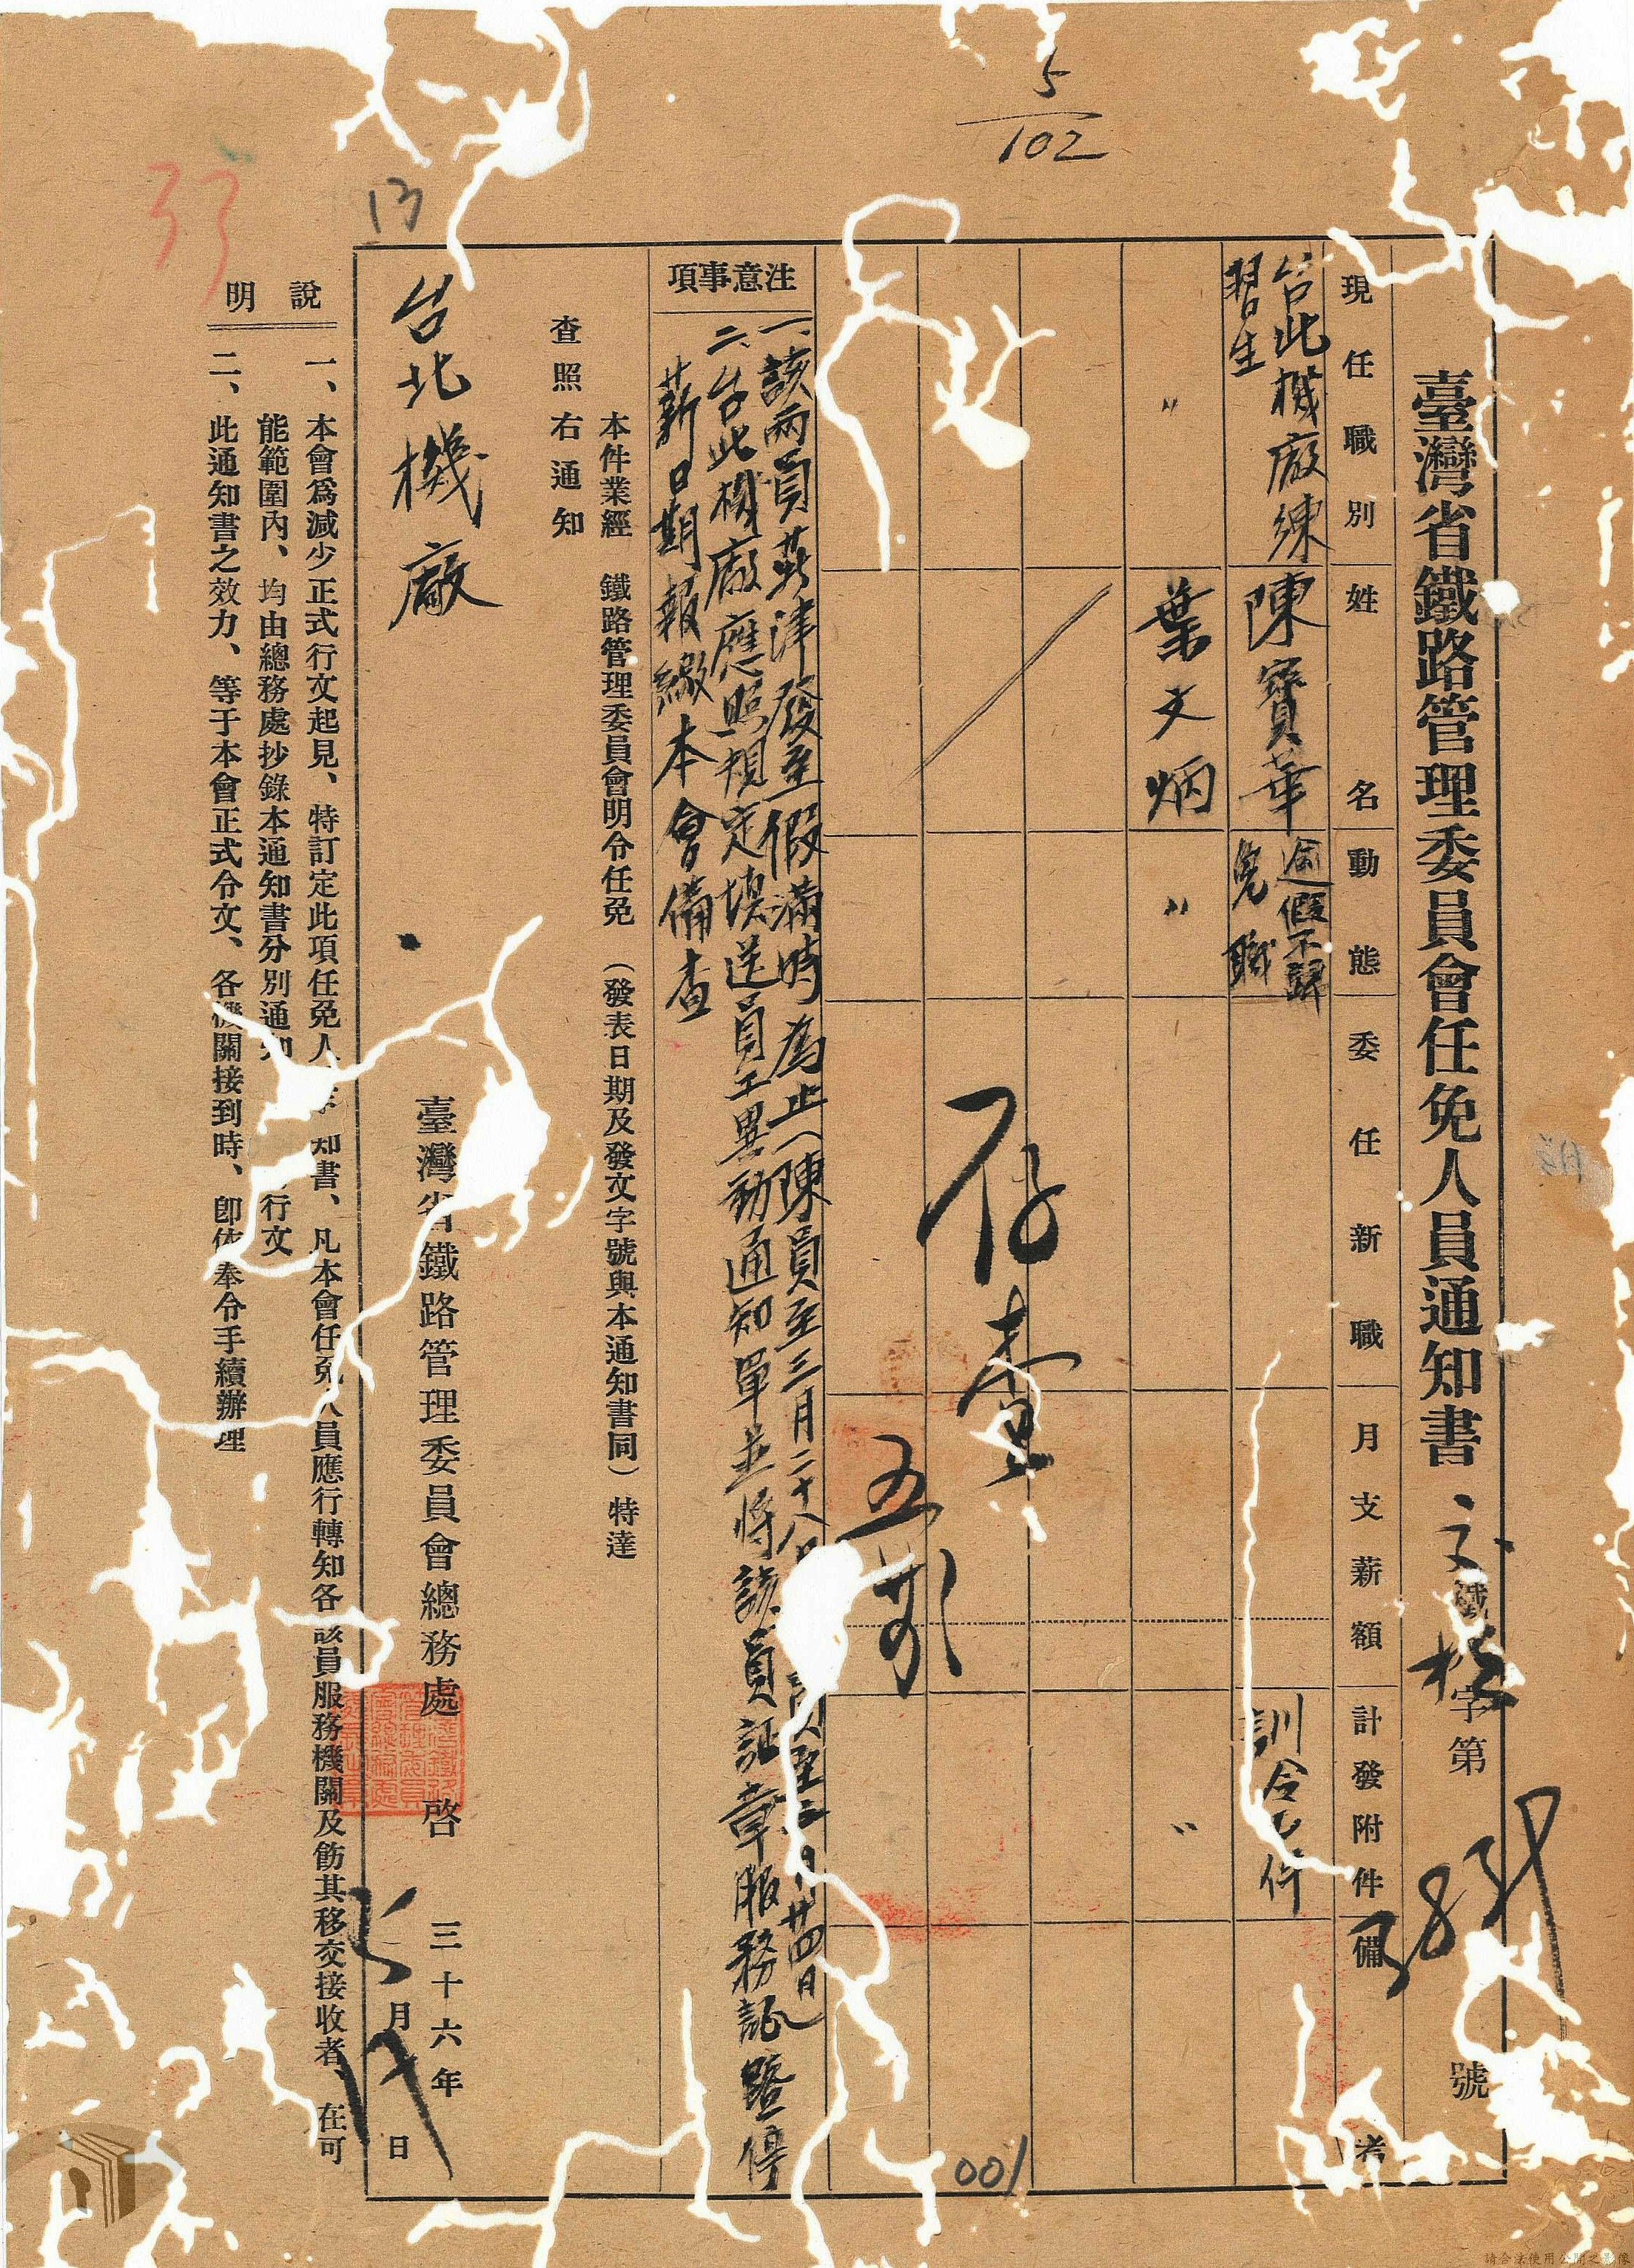 5
102
33
13
臺灣省鐵路管理委員會任免人員通知書
字第 號
現任職別
姓名
動態
委任新職
月支薪額
計發附件
備考
台北機廠練
習生
陳寶華
逾假不歸
免職
訓令乙件
〃
葉文炳
〃
〃
存查
注意事項
一、該兩員薪津發至假滿時為止(陳員至三月二十八日
至三月廿四日)
二、台北機廠應照規定填送員工異動通知單並將該員証章服務証暨停
薪日期報繳本會備查
本件業經 鐵路管理委員會明令任免 (發表日期及發文字號與本通知書同) 特達
查照 右通知
台北機廠
臺灣省鐵路管理委員會總務處 啓
三十六年 月 日
說明
一、本會爲減少正式行文起見、特訂定此項任免人 知書、凡本會任免人員應行轉知各該員服務機關及飭其移交接收者、在可
能範圍內、均由總務處抄錄本通知書分別通知 行文
二、此通知書之效力、等于本會正式令文、各機關接到時、卽依奉令手續辦理
001
請合法使用公開之影像